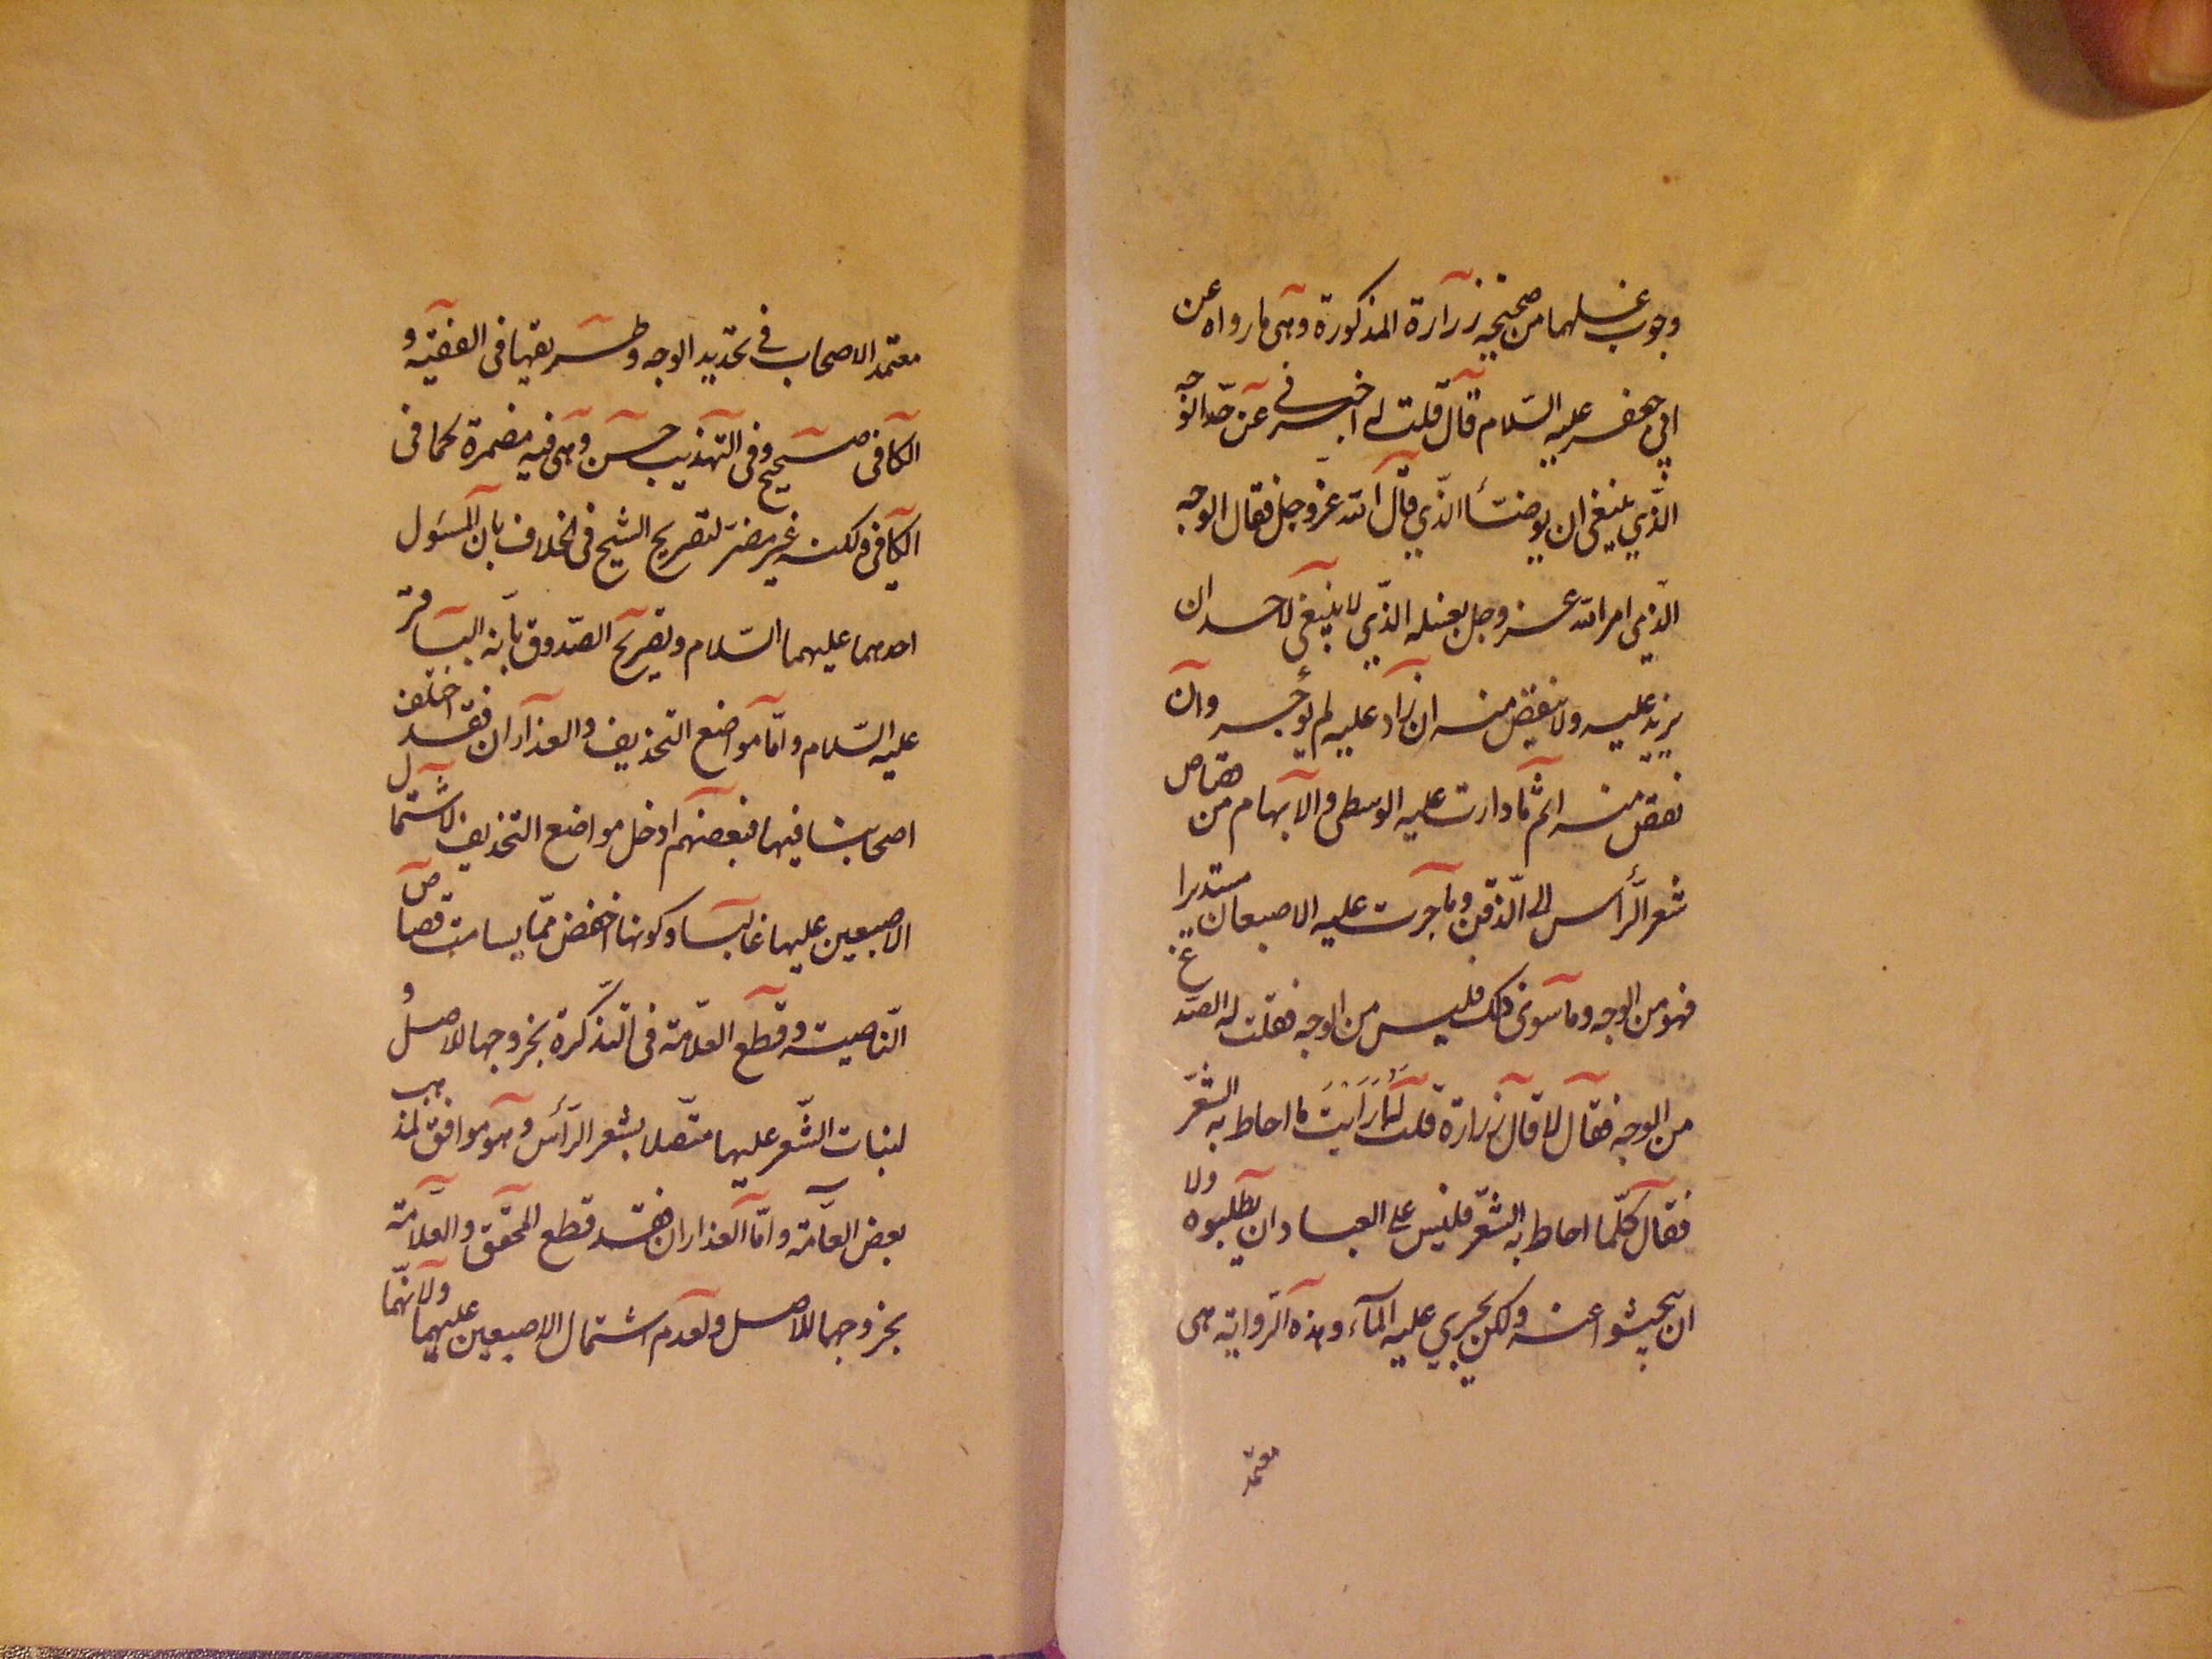 وجوب غسلهما من صحيحة زرارة المذكورة وهى ما رواه عن
ابي جعفر عليه السلام قال قلت له اخبرنى عن حدّ الوجه
الّذي ينبغى ان يوضّأ الّذي قال الله عزّ وجل فقال الوجه
الّذي امر الله عز وجل بغسله الّذي لا ينبغى لاحد ان
يزيد عليه ولا ينقص منه ان زاد عليه لم يؤجر وان
نقص منه اثم ما دارت عليه الوسطى والابهام من قصاص
شعر الرّأس الى الذّقن وما جرت عليه الاصبعان مستديرا
فهو من الوجه وما سوى ذلك فليس من الوجه فقلت له الصدغ
من الوجه فقال لا قال زرارة قلت له ارَاَيْتَ ما احاط به الشعر
فقال كلّما احاط به الشّعر فليس على العباد ان يطلبوه ولا
ان يبحثوا عنه ولكن يجرى عليه المآء وهذه الرّواية هى
معتمد
معتمد الاصحاب في تحديد الوجه وطريقها فى الفقيه و
الكافى صحيح وفى التهذيب حسن وهى فيه مضمرة كما فى
الكافى ولكنه غير مضر لتصريح الشيخ فى الخلاف بان المسئول
احدهما عليهما السّلام وتصريح الصّدوق بأنه الباقر
عليه السّلام وامّا مواضع التحذيف والعذاران فقد اختلف
اصحابنا فيها فبعضهم ادخل مواضع التحذيف لاشتمال
الاصبعين عليها غالبا وكونها اخفض ممّا يسامت قصاص
النّاصية وقطع العلّامة فى التذكرة بخروجها للاصل و
لنبات الشّعر عليها متّصلا بشعر الرّأس وهو موافق لمذهب
بعض العامّة وامّا العذاران فقد قطع المحقق والعلّامة
بخروجهما للاصل ولعدم اشتمال الاصبعين عليهما ولانهّما